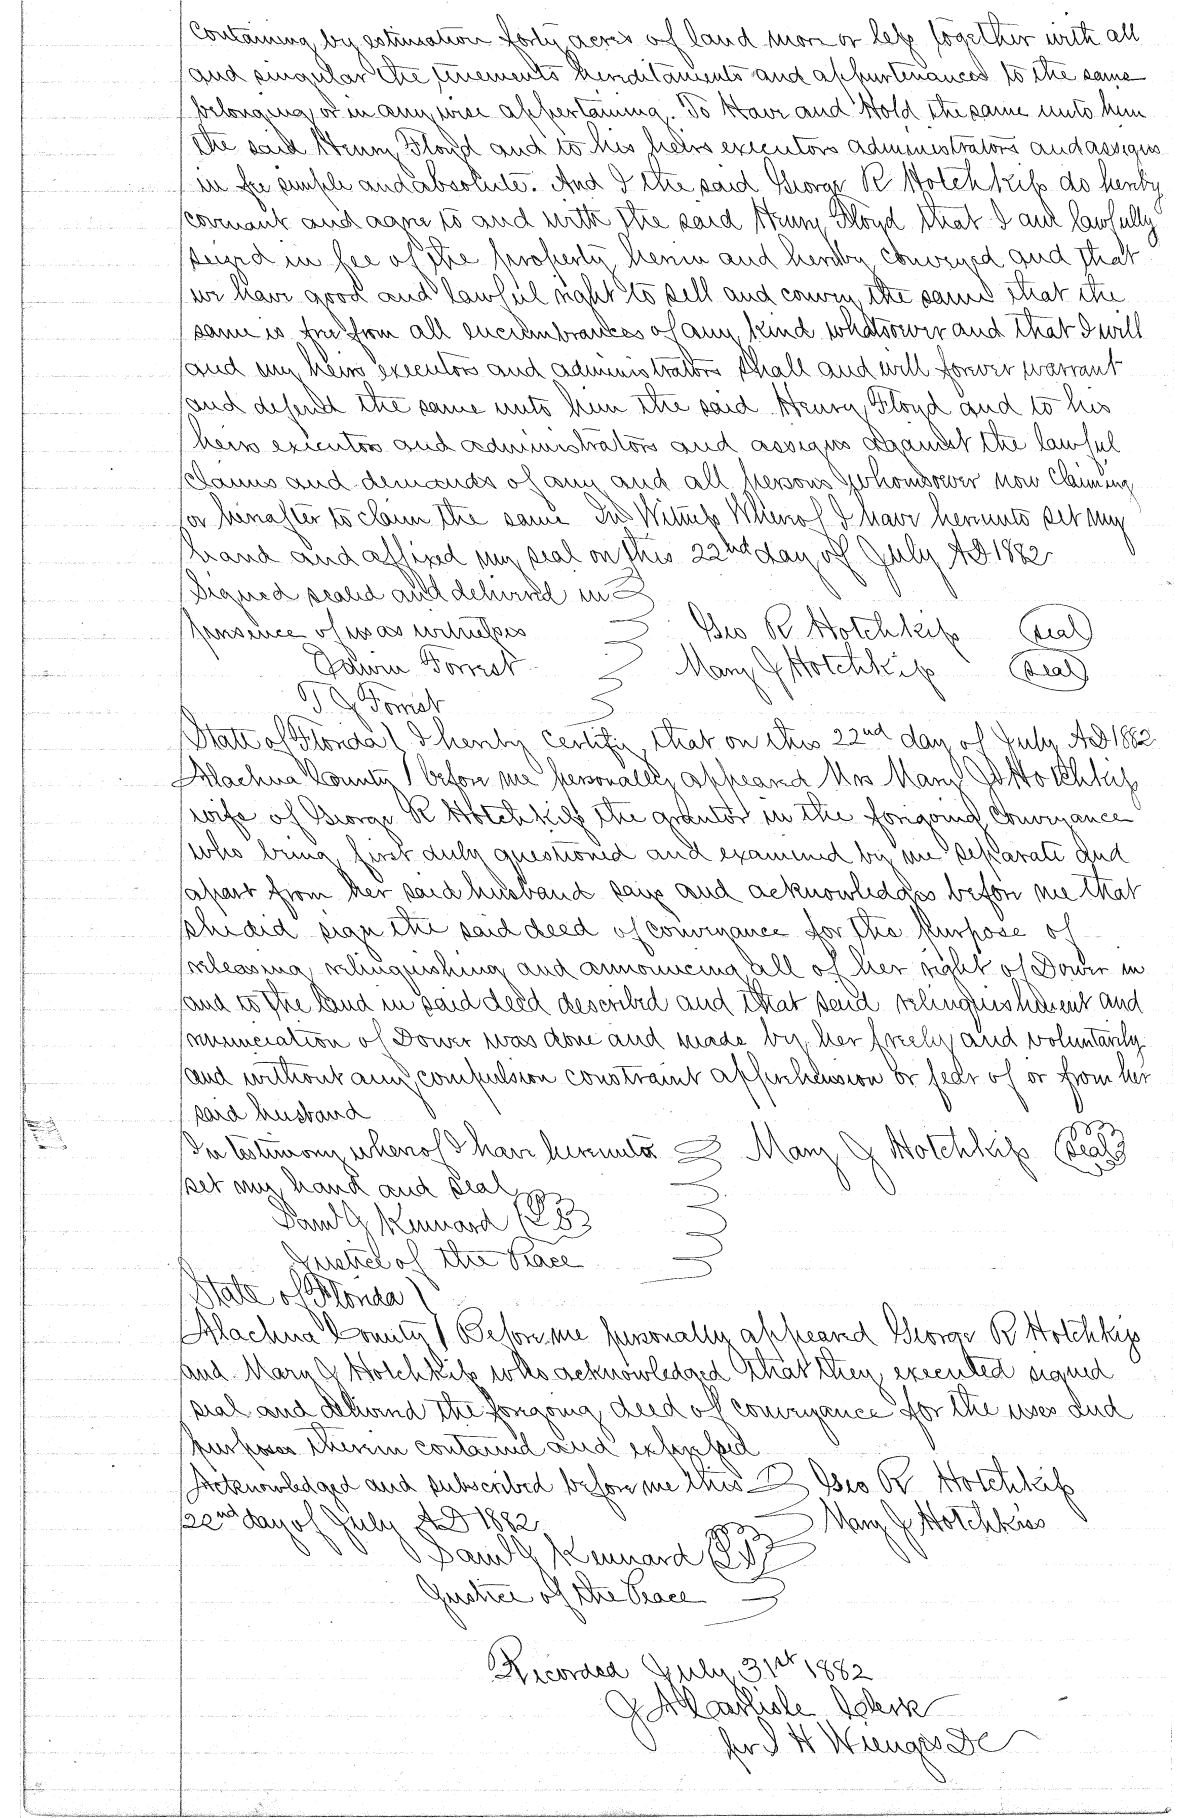 containing by estimation forty acres of land more or less together with all
and singular the tenements hereditaments and appurtenances to the same
belonging or in any wise appertaining. To Have and Hold the same unto him
the said Henry Floyd and to his heirs executors administrators and assigns
in fee simple and absolute. And I the said George R Hotchkiss do hereby
covenant and agree to and with the said Henry Floyd that I am lawfully
seized in fee of the property herein and hereby conveyed and that
we have good and lawful right to sell and convey the same that the
same is free from all encumbrances of any kind whatsoever and that I will
and my heirs executors and administrators shall and will forever warrant
and defend the same unto him the said Henry Floyd and to his
heirs executors and administrators and assigns against the lawful
claims and demands of any and all persons whomsoever now claiming
or hereafter to claim the same In Witness Whereof I have hereunto set my
hand and affixed my seal on this 22nd day of July AD 1882
Signed sealed and delivered in
presence of us as witnesses Geo R Hotchkiss (seal)
Edwin Forrest Mary J Hotchkiss (seal)
T J Forrest
State of Florida ) I hereby certify that on this 22nd day of July AD 1882
Alachua County ) before me personally appeared Mrs Mary J Hotchkiss
wife of George R Hotchkiss the grantor in the foregoing conveyance
who being first duly questioned and examined by me separate and
apart from her said husband says and acknowledges before me that
she did sign the said deed of conveyance for the purpose of
releasing relinquishing and announcing all of her right of Dower in
and to the land in said deed described and that said relinquishment and
renunciation of Dower was done and made by her freely and voluntarily
and without any compulsion constraint apprehension or fear of or from her
said husband
In testimony whereof I have hereunto Mary J Hotchkiss (seal)
set my hand and seal
Saml J Kennard (LS)
Justice of the Peace
State of Florida )
Alachua County ) Before me personally appeared George R Hotchkiss
and Mary J Hotchkiss who acknowledged that they executed signed
seal and delivered the foregoing deed of conveyance for the uses and
purposes therein contained and expressed
Acknowledged and subscribed before me this Geo R Hotchkiss
22nd day of July AD 1882 Mary J Hotchkiss
Saml J Kennard (LS)
Justice of the Peace
Recorded July 31st 1882
J A Carlisle Clerk
per I H Wienges DC